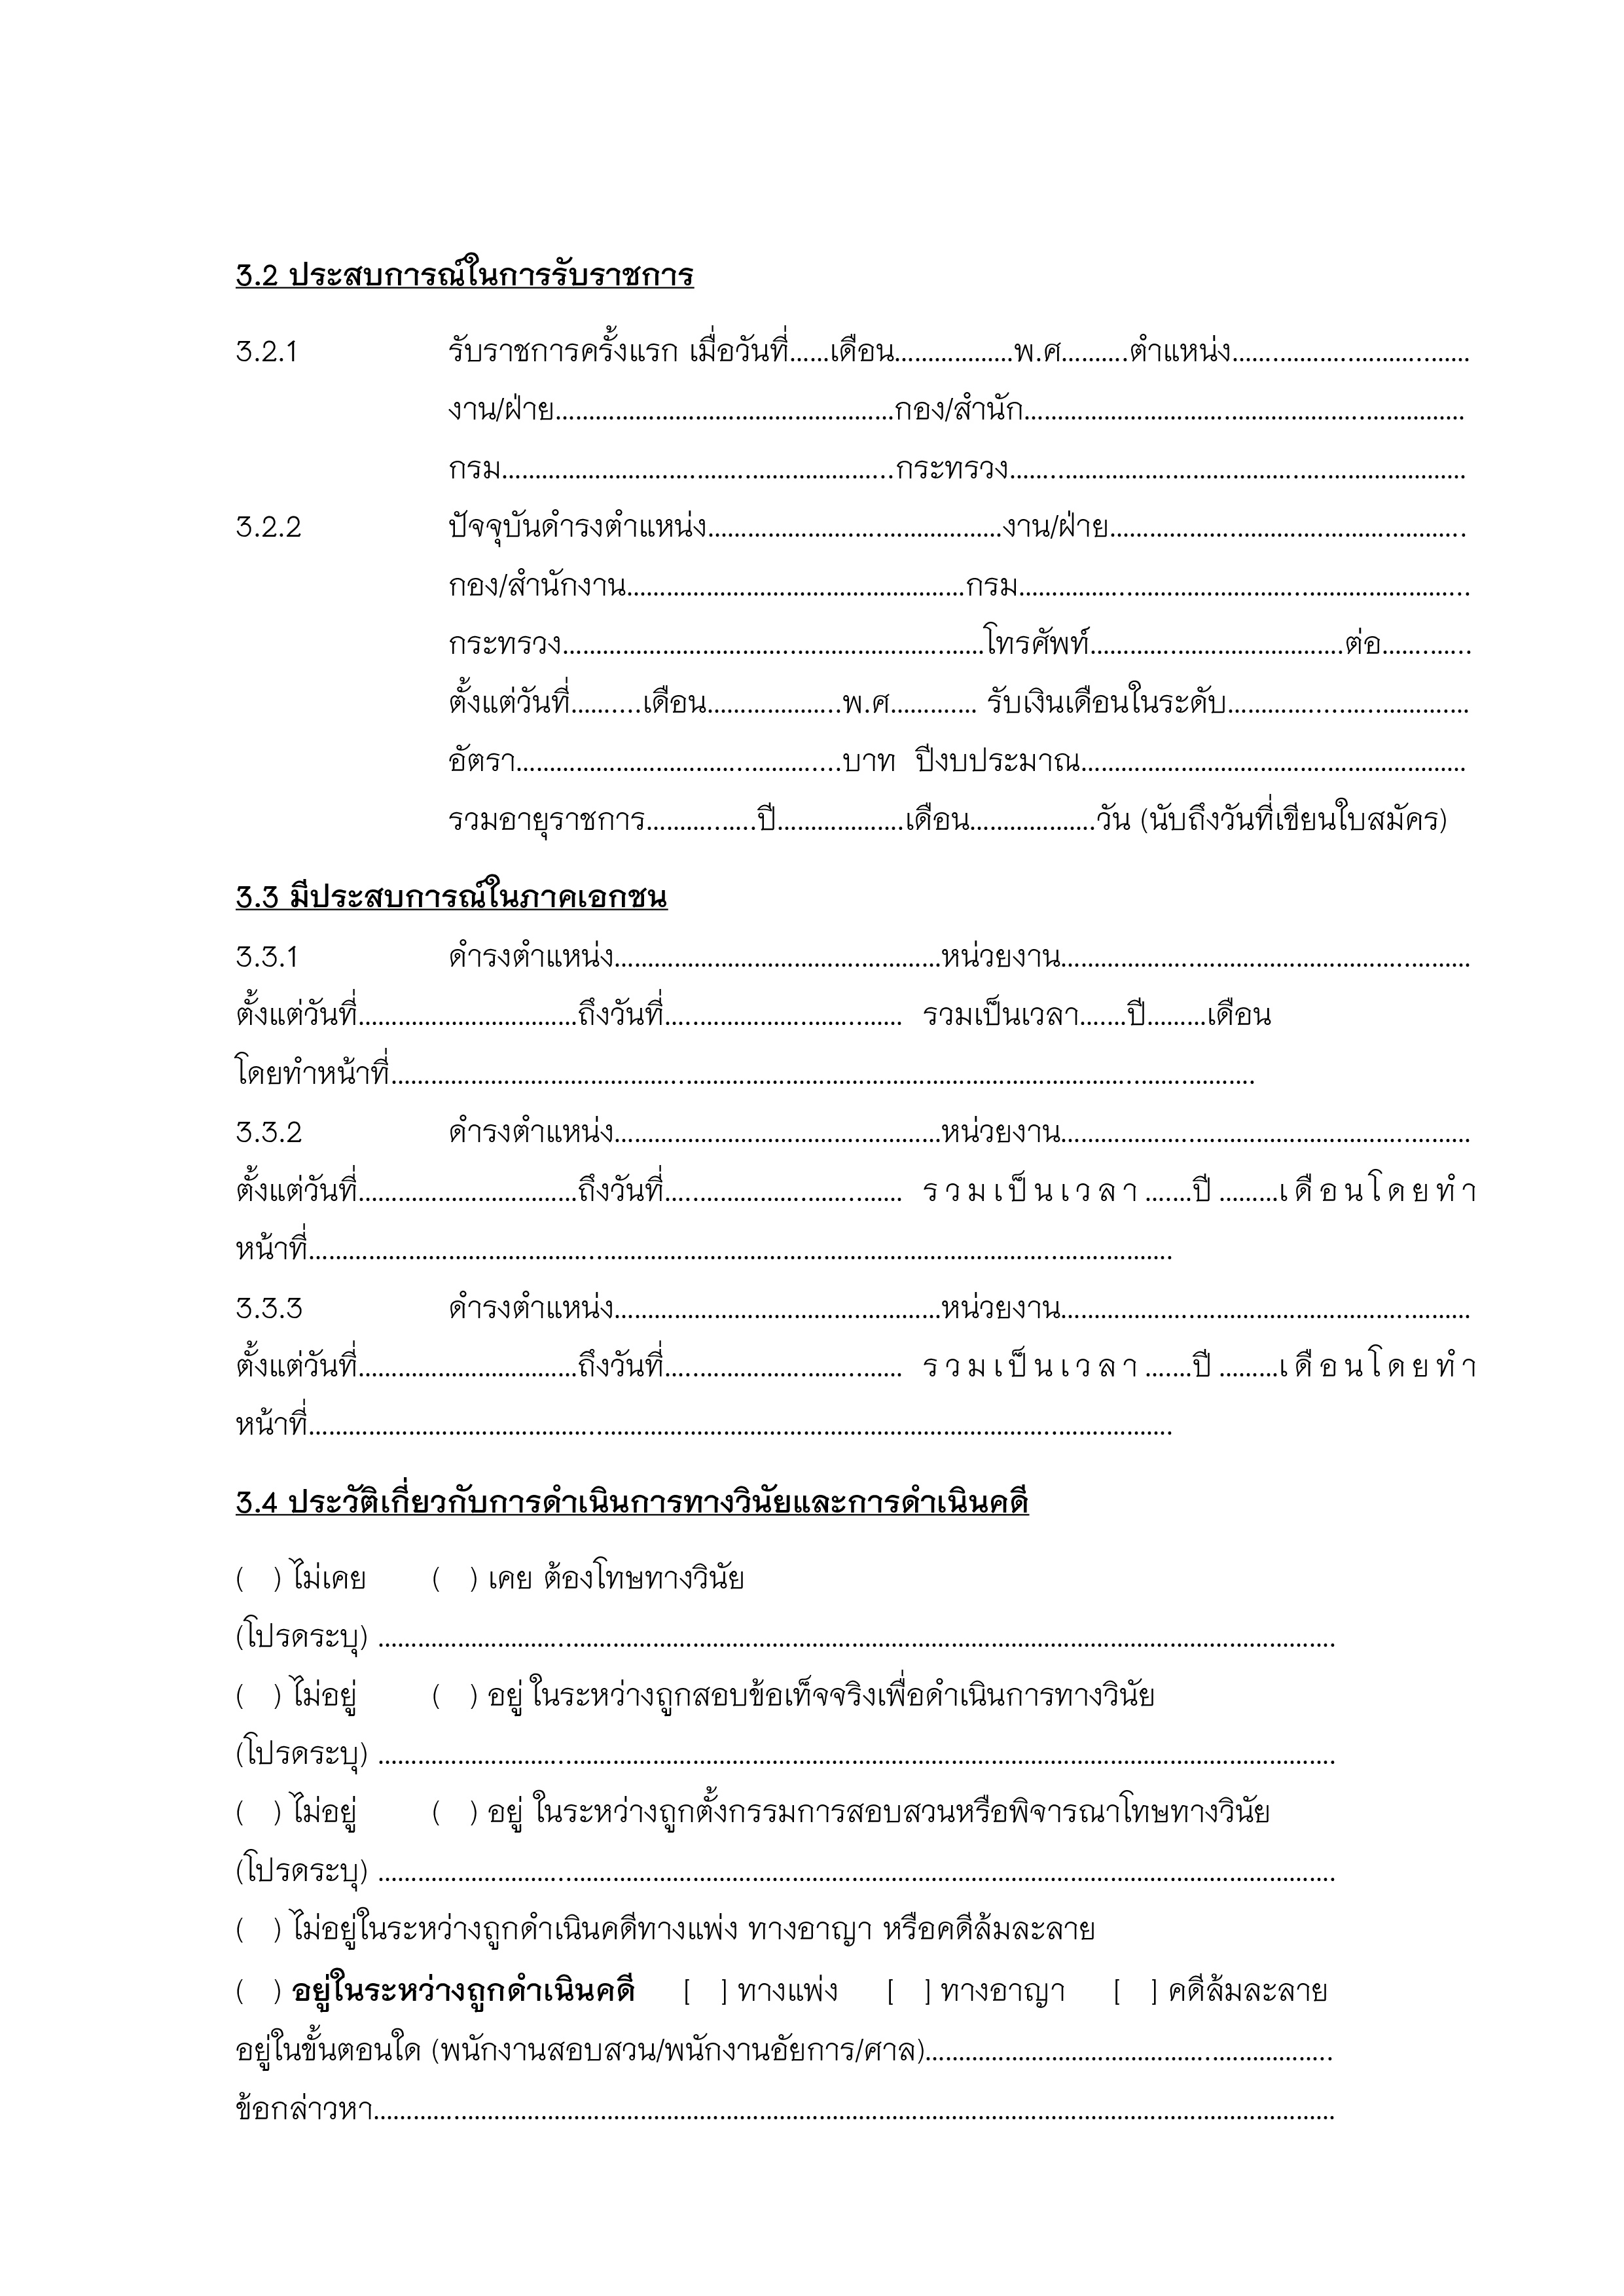 3.2 ประสบการณ์ในการรับราชการ
3.2.1 รับราชการครั้งแรก เมื่อวันที่......เดือน..................พ.ศ..........ตำแหน่ง....................................
งาน/ฝ่าย...................................................กอง/สำนัก..................................................................
กรม...........................................................กระทรวง.....................................................................
3.2.2 ปัจจุบันดำรงตำแหน่ง............................................งาน/ฝ่าย.....................................................
กอง/สำนักงาน...................................................กรม....................................................................
กระทรวง...............................................................โทรศัพท์......................................ต่อ.............
ตั้งแต่วันที่..........เดือน....................พ.ศ............. รับเงินเดือนในระดับ....................................
อัตรา.................................................บาท ปีงบประมาณ..........................................................
รวมอายุราชการ................ปี...................เดือน...................วัน (นับถึงวันที่เขียนใบสมัคร)
3.3 มีประสบการณ์ในภาคเอกชน
3.3.1 ดำรงตำแหน่ง.................................................หน่วยงาน.............................................................
ตั้งแต่วันที่.................................ถึงวันที่.................................... รวมเป็นเวลา.......ปี.........เดือน
โดยทำหน้าที่.................................................................................................................................
3.3.2 ดำรงตำแหน่ง.................................................หน่วยงาน.............................................................
ตั้งแต่วันที่.................................ถึงวันที่.................................... รวมเป็นเวลา.......ปี.........เดือนโดยทำ
หน้าที่.................................................................................................................................
3.3.3 ดำรงตำแหน่ง.................................................หน่วยงาน.............................................................
ตั้งแต่วันที่.................................ถึงวันที่.................................... รวมเป็นเวลา.......ปี.........เดือนโดยทำ
หน้าที่.................................................................................................................................
3.4 ประวัติเกี่ยวกับการดำเนินการทางวินัยและการดำเนินคดี
( ) ไม่เคย ( ) เคย ต้องโทษทางวินัย
(โปรดระบุ) ...............................................................................................................................................
( ) ไม่อยู่ ( ) อยู่ ในระหว่างถูกสอบข้อเท็จจริงเพื่อดำเนินการทางวินัย
(โปรดระบุ) ...............................................................................................................................................
( ) ไม่อยู่ ( ) อยู่ ในระหว่างถูกตั้งกรรมการสอบสวนหรือพิจารณาโทษทางวินัย
(โปรดระบุ) ...............................................................................................................................................
( ) ไม่อยู่ในระหว่างถูกดำเนินคดีทางแพ่ง ทางอาญา หรือคดีล้มละลาย
( ) อยู่ในระหว่างถูกดำเนินคดี [ ] ทางแพ่ง [ ] ทางอาญา [ ] คดีล้มละลาย
อยู่ในขั้นตอนใด (พนักงานสอบสวน/พนักงานอัยการ/ศาล).............................................................
ข้อกล่าวหา................................................................................................................................................